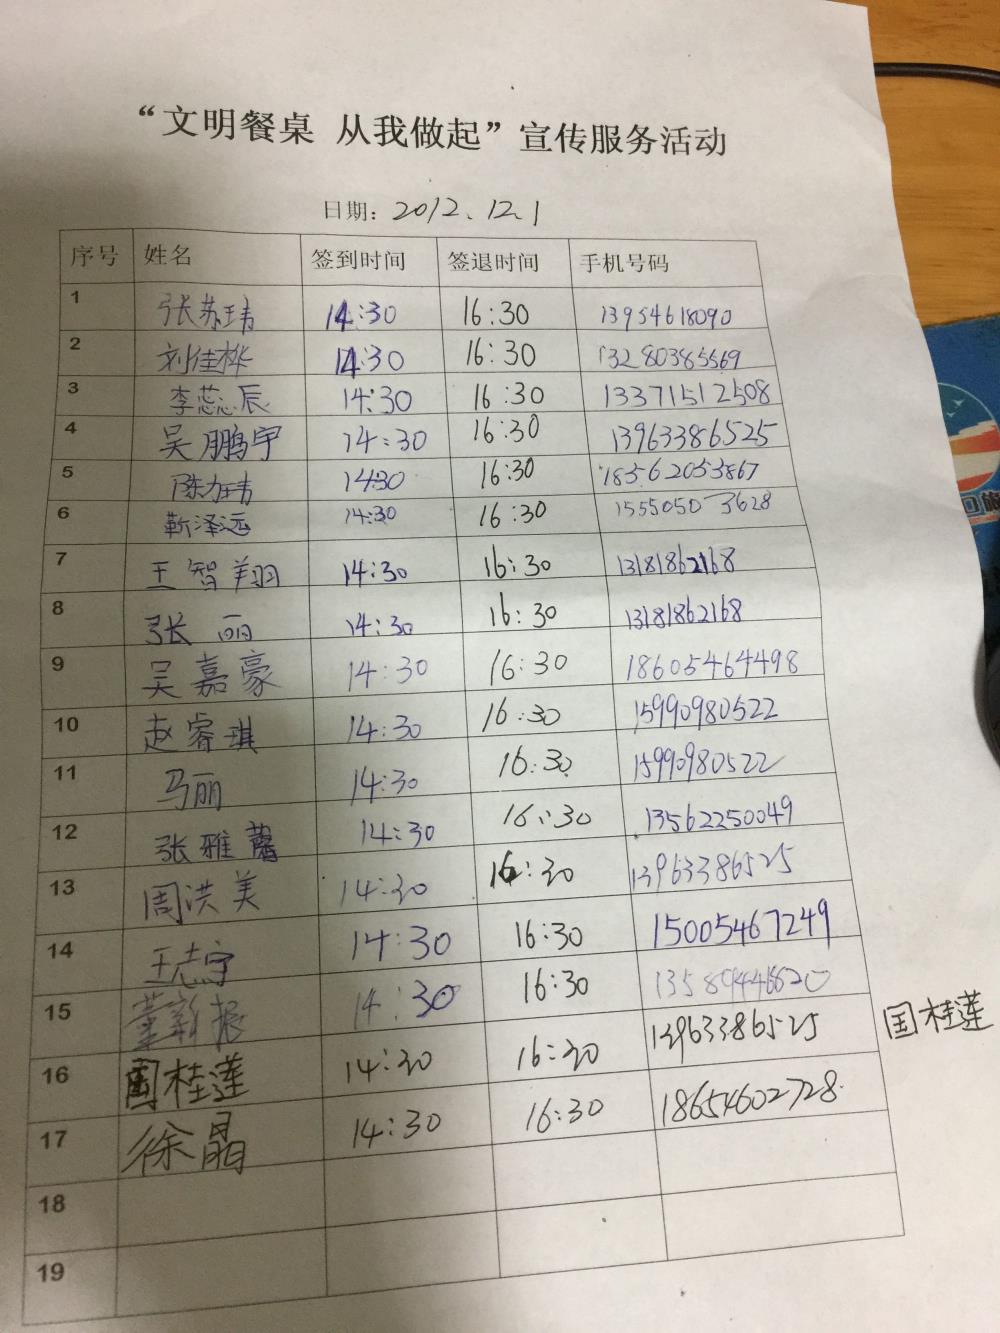 “文明餐桌 从我做起”宣传服务活动
日期: 2012.12.1
序号 姓名 签到时间 签退时间 手机号码
1 张苏玮 14:30 16:30 13954618090
2 刘佳桦 14:30 16:30 13280385569
3 李蕊辰 14:30 16:30 13371512508
4 吴鹏宇 14:30 16:30 13963386525
5 陈力玮 14:30 16:30 18562053867
6 靳泽远 14:30 16:30 15550503628
7 王智翔 14:30 16:30 13181862168
8 张丽 14:30 16:30 13181862168
9 吴嘉豪 14:30 16:30 18605464498
10 赵睿琪 14:30 16:30 15990980522
11 马丽 14:30 16:30 15990980522
12 张雅馨 14:30 16:30 13562250049
13 周洪美 14:30 16:30 13963386525
14 王志宇 14:30 16:30 15005467249
15 董新振 14:30 16:30
16 国桂莲 14:30 16:30 13963386525 国桂莲
17 徐晶 14:30 16:30 18654602728
18
19